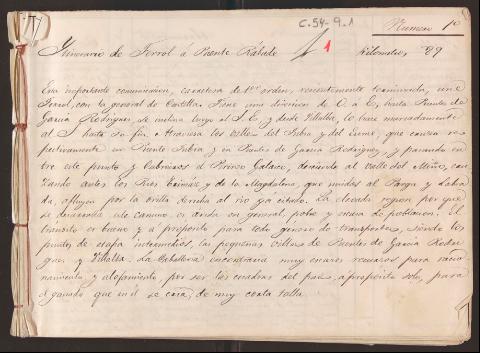 C.54-9.1
Numero 1º
Itinerario de Ferrol á Puente Rábade
1
Kilometros 89
Esta importante comunicacion, carretera de 1er orden, recientemente terminada, une
Ferrol, con la general de Castilla. Tiene una direccion de O. á E, hasta Puentes de
Garcia Rodriguez, se inclina luego al S.E, y desde Villalba, lo hace marcadamente
al S hasta su fin. Atraviesa los valles del Jubia y del Eume, que cruza res-
pectivamente en Puente Jubia y en Puentes de Garcia Rodriguez, y pasando en
tre este punto y Cabreiros el Pirineo Galaico, desciende al valle del Miño, cru
zando antes los Rios Trimáz y de la Magdalena, que unidos al Parga y Labra
da, afluyen por la orilla derecha al rio ya citado. La elevada region por que
se desarrolla este camino, es árida en general, pobre y escasa de poblacion. El
transito es bueno y á proposito para todo genero de transportes, siendo los
puntos de etapa intermedios, las pequeñas villas de Puentes de Garcia Rodri
guez y Villalba. La Caballeria encontrará muy escasos recursos para racio
namiento y alojamiento, por ser las cuadras del pais, apropósito solo, para
el ganado que en él se cria, de muy corta talla.